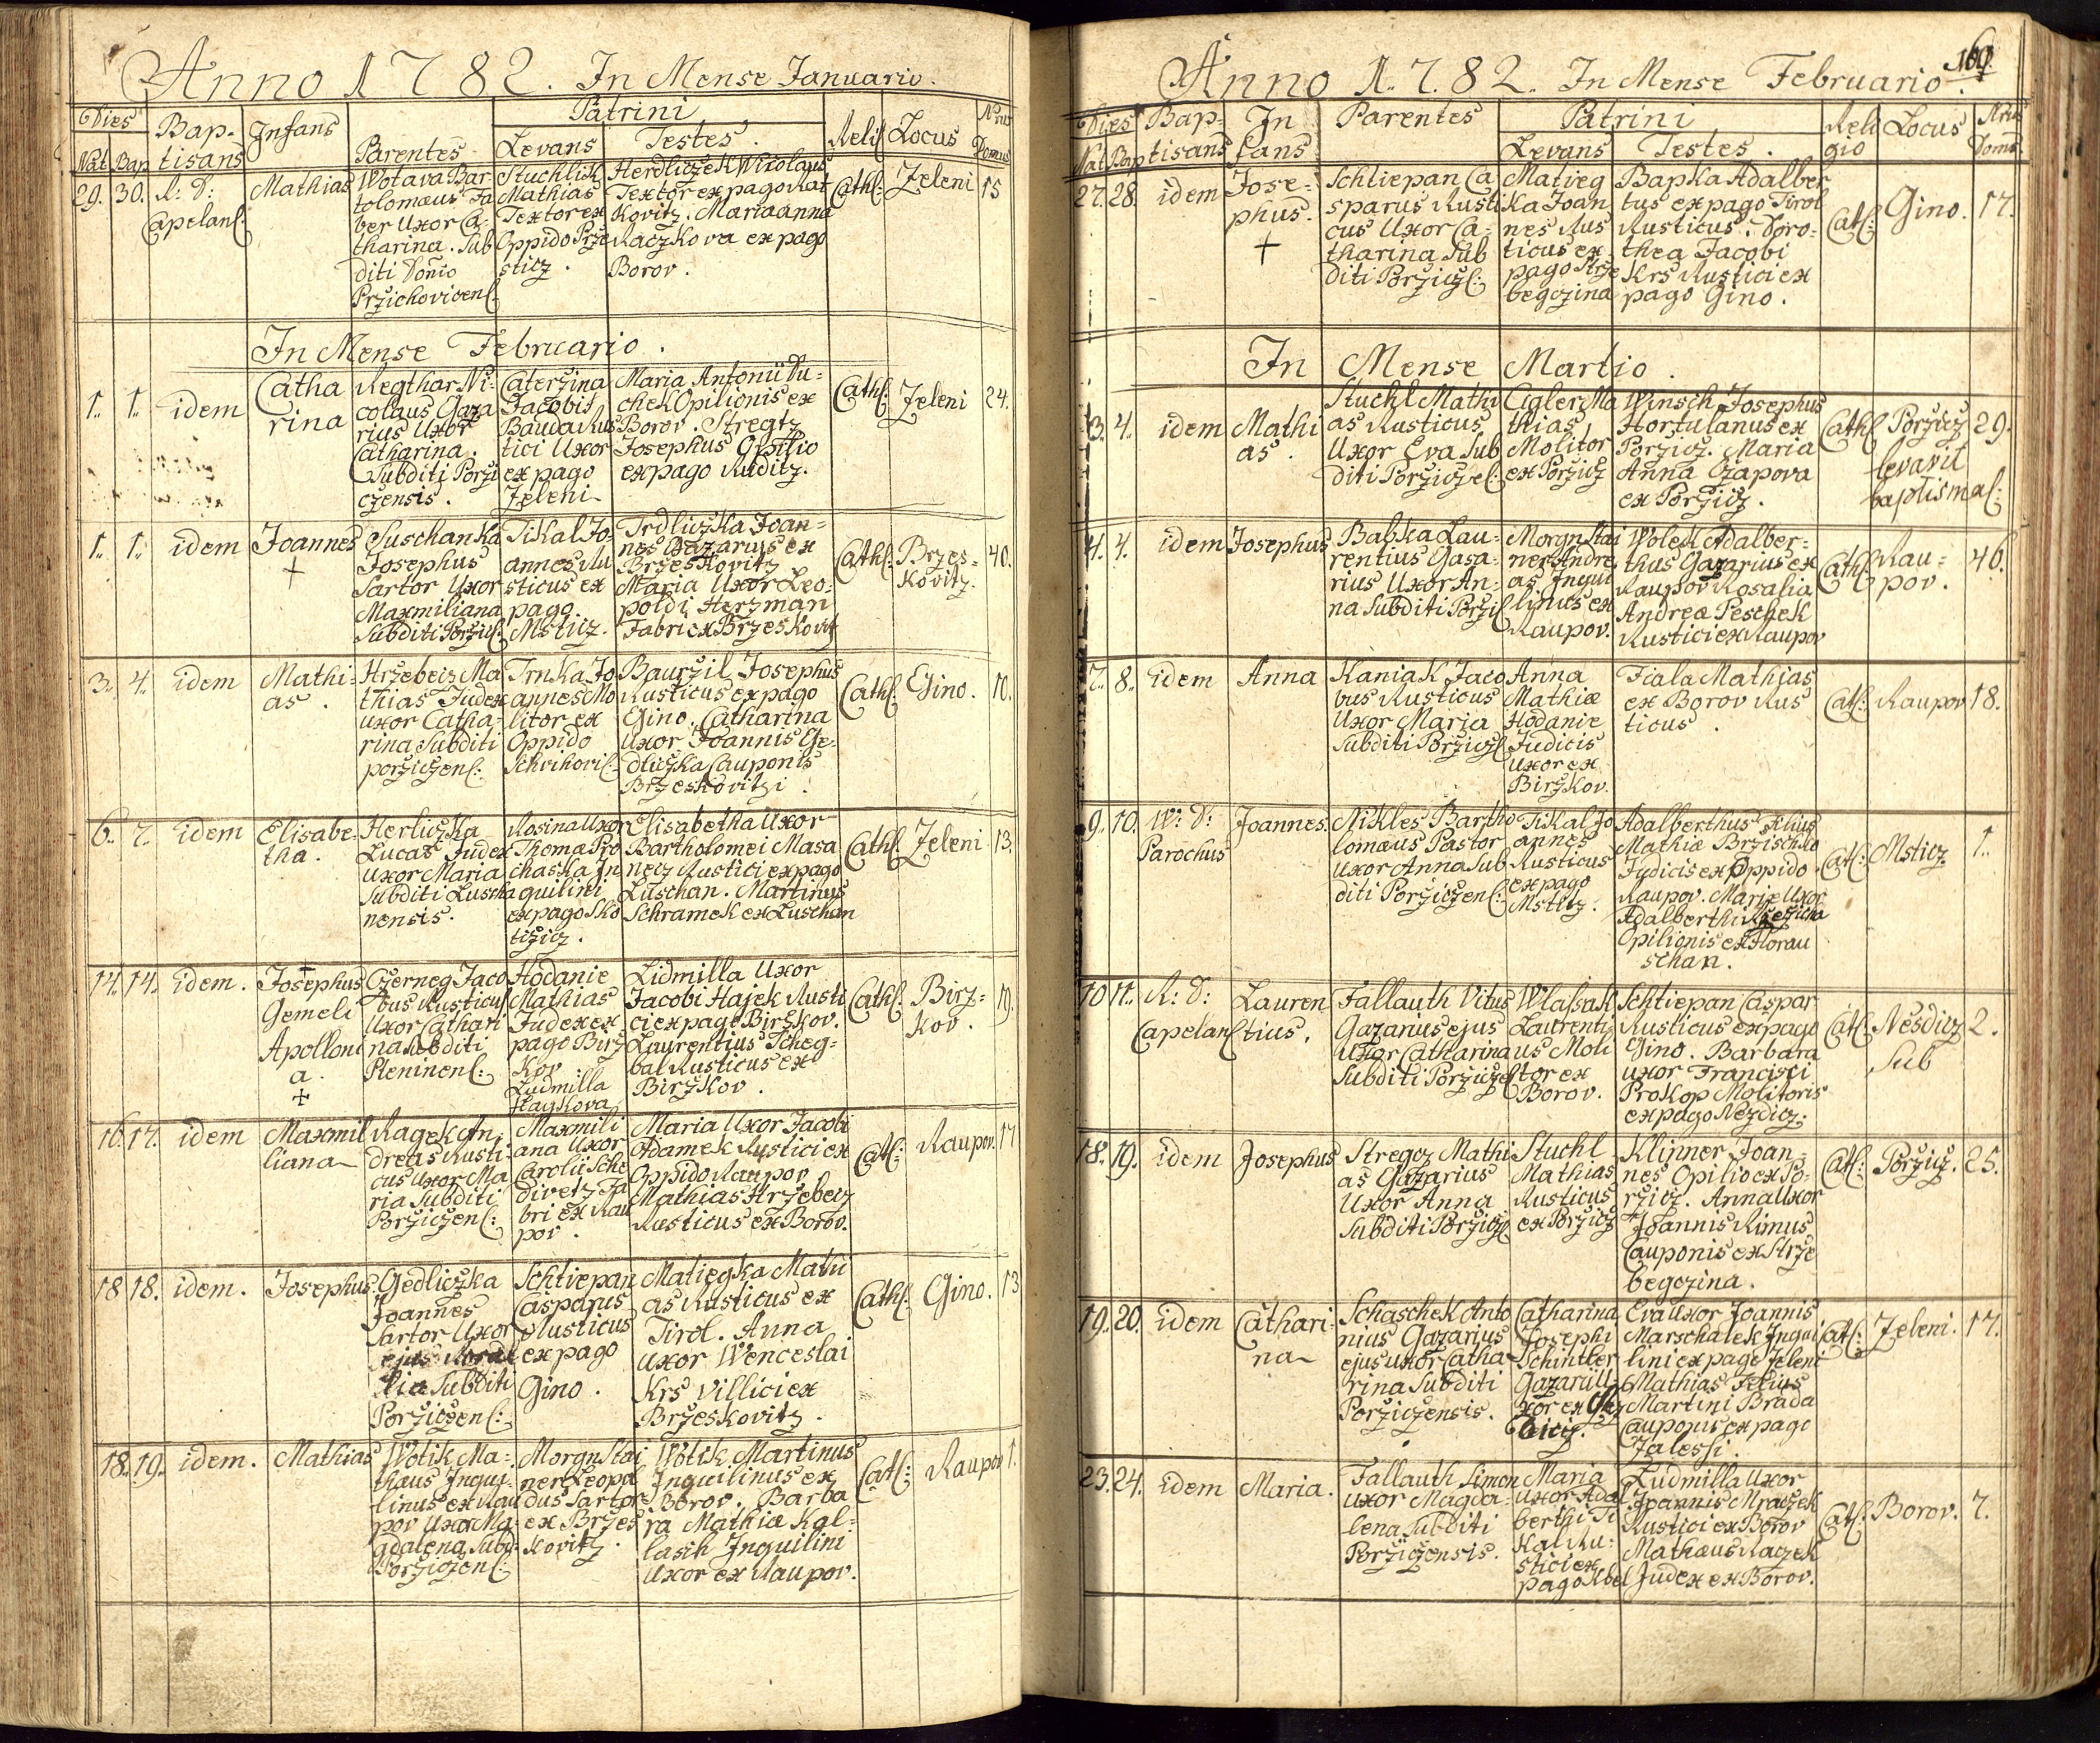 Anno 1782. In Mense Januario.
Dies Bap- Infans Parentes Patrini Relig Locus Nrus
Nat Bap tisans Levans Testes Domus
29. 30. R: D: Capelanſ: Mathias
Wotava Bar
tolomæus Fa
ber Uxor Ca-
tharina. Sub
diti Domio
Przichovicenſ:
Stuchlik
Mathias
Textor ex
Oppido Prze
sticz.
Herdliczek Nicolaus
Textor ex pago Rat
kovitz. Maria anna
Raczkova ex pago
Borov.
Cathl: Zeleni 15
In Mense Februario.
1. 1. idem Catha
rina
Regthar Ni-
colaus Gaza
rius Uxor
Catharina.
Subditi Porzi
czensis.
Caterzina
Jacobi
Bauda Rus
tici Uxor
ex pago
Zeleni
Maria Antonii Du-
chek Opilionis ex
Borov. Stregtz
Josephus Opilio
ex pago Ruditz.
Cathl: Zeleni 24.
1. 1. idem Joannes
+
Suschanka
Josephus
Sartor Uxor
Maxmiliana
Subditi Porzicſ:
Tikal Jo-
annes Ru
sticus ex
pago
Msticz.
Trdliczka Joan-
nes Gazarius ex
Brzeskovitz
Maria Uxor Leo-
poldi Herzman
Fabri ex Brzeskovitz
Cathl: Brzes-
kovitz. 40.
3. 4. idem Mathi-
as.
Hrzebecz Ma
thias Judex
uxor Catha-
rina Subditi
porziczenſ:
Trnka Jo
annes Mo
litor ex
Oppido
Schvihoviſ:
Baurzil Josephus
Rusticus ex pago
Gino. Catharina
Uxor Joannis Ge-
dliczka Cauponis
Brzeskovitzi.
Cathl: Gino. 10.
6. 7. idem Elisabe-
tha.
Herliczka
Lucas Judex
Uxor Maria
Subditi Luscha
nensis.
Rosina Uxor
Thoma Pro
chaska In
quilini
ex pago Sko
ticzicz.
Elisabetha Uxor
Bartholomei Masa
necz Rustici ex pago
Luschan. Martinus
Schramek ex Luschan
Cathl: Zeleni 13.
14. 14. idem. +
Josephus
Gemeli
Apolloni
a.
+
Czerneg Jaco
bus Rusticus
Uxor Cathari
na Subditi
Pleninenſ:
Hodanie
Mathias
Judex ex
pago Birz
kov.
Ludmilla
Haykova
Lidmilla Uxor
Jacobi Hajek Rusti
ci ex pago Birzkov.
Laurentius Scheg-
bal Rusticus ex
Birzkov.
Cathl: Birz-
kov. 19.
16. 17. idem Maxmil
liana
Ragek An-
dreas Rusti-
cus Uxor Ma
ria Subditi
Porziczenſ:
Maxmili
ana Uxor
Carolii Sche
divetz Fa
bri ex Rau
pov.
Maria Uxor Jacobi
Adamek Rustici ex
Oppido Raupov
Mathias Hrzebecz
Rusticus ex Borov.
Catl: Raupov. 17
18 18. idem. Josephus.
Gedliczka
Joannes
Sartor Uxor
ejus Rosa
lia Subditi
Porziczenſ:
Schtiepan
Casparus
Rusticus
ex pago
Gino.
Matiegka Mathi
as Rusticus ex
Tirol. Anna
uxor Wenceslai
Krs villici ex
Brzeskovitz.
Cathl: Gino. 13
18. 19. idem. Mathias
Wotik Ma-
thæus Inqui-
linus ex Rau
pov Uxor Ma-
gdalena Subdi-
Porziczenſ:
Morgnstai
ner Leopa
dus Sartor
ex Brzes
kovitz.
Wotik Martinus
Inquilinus ex
Borov. Barba
ra Mathiæ Kal-
lasch Inquilini
Uxor ex Raupov.
Catl: Raupov 1.
169.
Anno 1782. In Mense Februario.
Dies Bap- In Parentes Patrini Reli Locus Nrus
Nat Bap tisans fans Levans Testes. gio Domus
27. 28. idem Jose-
phus.
+
Schtiepan Ca
sparus Rusti
cus Uxor Ca-
tharina Sub
diti Porziczſ:
Matieg
ka Joan
nes Rus
ticus ex
pago Strze
begczina
Bapka Adalber
tus ex pago Tirol
Rusticus. Doro-
thea Jacobi
Krs Rustici ex
pago Gino.
Catl: Gino. 17.
In Mense Martio.
3. 4. idem Mathi
as.
Stuchl Mathi
as Rusticus
Uxor Eva Sub
diti Porziczeſ:
Cigler Ma
thias
Molitor
ex Porzicz
Winsch Josephus
Hortulanus ex
Porzicz. Maria
Anna Czapova
ex Porzicz.
Cathl Porzicz 29.
levavit
baptismaſ:
4. 4. idem Josephus
Babka Lau-
rentius Gasa-
rius Uxor An-
na Subditi Porziſ
Morgnstai
ner Andre
as Inqui
linus ex
Raupov.
Wolek Adalber-
thus Gazarius ex
Raupov Rosalia
Andrea Peschek
Rustici ex Raupov
Cathl Rau-
pov. 46.
7. 8. idem Anna
Kaniak Jaco
bus Rusticus
Uxor Maria
Subditi Porziczſ
Anna
Mathiæ
Hodanie
Judicis
Uxor ex
Birzkov.
Fiala Mathias
ex Borov Rus
ticus.
Catl: Raupov 18.
9. 10. W: D:
Parochus Joannes.
Nikles Bartho
lomæus Pastor
Uxor Anna Sub
diti Porziczenſ:
Tikal Jo
annes
Rusticus
ex pago
Mstitz.
Adalberthus Filius
Mathiæ Brzischko
Judicis ex Oppido
Raupov. Marie Uxor
Adalberthi
Opilionis ex Horau
schan.
Catl: Msticz 1.
10 11. R: D:
Capelanſ Lauren
tius.
Fallauth Vitus
Gazarius ejus
Uxor Catharina
Subditi Porziczeſ
Wlassak
Laurenti
us Moli
tor ex
Borov.
Schtiepan Caspar
Rusticus ex pago
Gino. Barbara
uxor Francisci
Prokop Molitoris
ex pago Nezdicz.
Catl: Nesdicz 2.
Sub
18. 19. idem Josephus
Stregcz Mathi
as Gazarius
Uxor Anna
Subditi Porziczſ
Stuchl
Mathias
Rusticus
ex Porzicz
Klinner Joan-
nes Opilio ex Po-
rzicz. Anna Uxor
Joannis Rimus
Cauponis ex Strze
begczina.
Catl: Porzicz. 25.
19. 20. idem Cathari-
na
Schaschek Anto
nius Gazarius
ejus uxor Catha
rina Subditi
Porziczensis.
Catharina
Josephi
Schintler
Gazarii U-
xor ex
Eva uxor Joannis
Marschalek Inqui
lini ex pago Zeleni
Mathias Felius
Martini Brada
Cauponis ex pago
Zalessi.
Catl: Zeleni. 17.
23. 24. idem Maria.
Fallauth Simon
uxor Magda-
lena Subditi
Porziczensis.
Maria
uxor Adal
berthi Ti
kal Ru-
stici ex
pago Kbel
Ludmilla Uxor
Joannis Mraczek
Rustici ex Borov
Mathæus Raczek
Judex ex Borov.
Catl: Borov. 7.